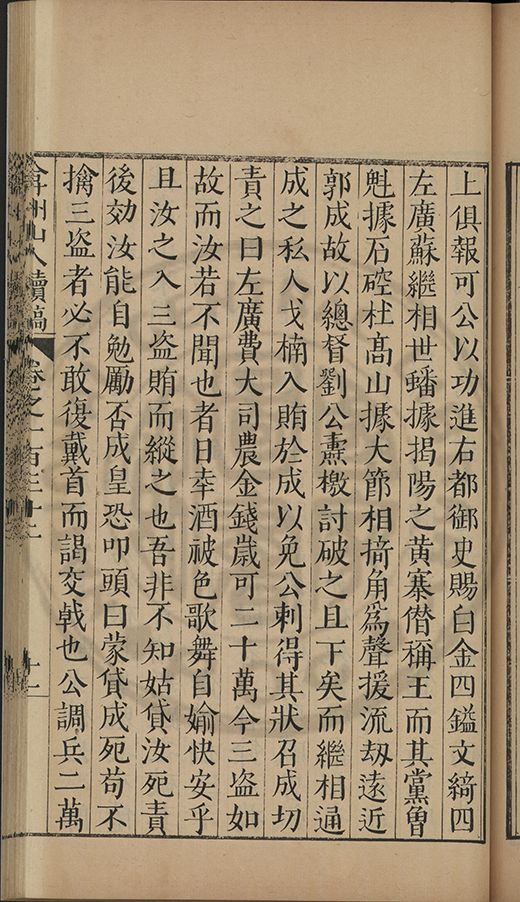 上俱報可公以功進右都御史賜白金四鎰文綺四
左廣蘇繼相世蟠據揭陽之黄寨僣稱王而其黨曾
魁據石硿杜髙山據大節相掎角爲聲援流刼遠近
郭成故以總督劉公燾檄討破之且下矣而繼相通
成之私人戈楠入賄於成以免公刺得其狀召成切
責之曰左廣費大司農金錢歲可二十萬今三盗如
故而汝若不聞也者日幸酒祓色歌舞自媮快安乎
且汝之入三盗賄而縱之也吾非不知姑貸汝死責
後効汝能自勉勵否成皇恐叩頭曰蒙貸成死苟不
擒三盗者必不敢復戴首而謁交戟也公調兵二萬
弇州山人續稿 卷之一百三十二 十一